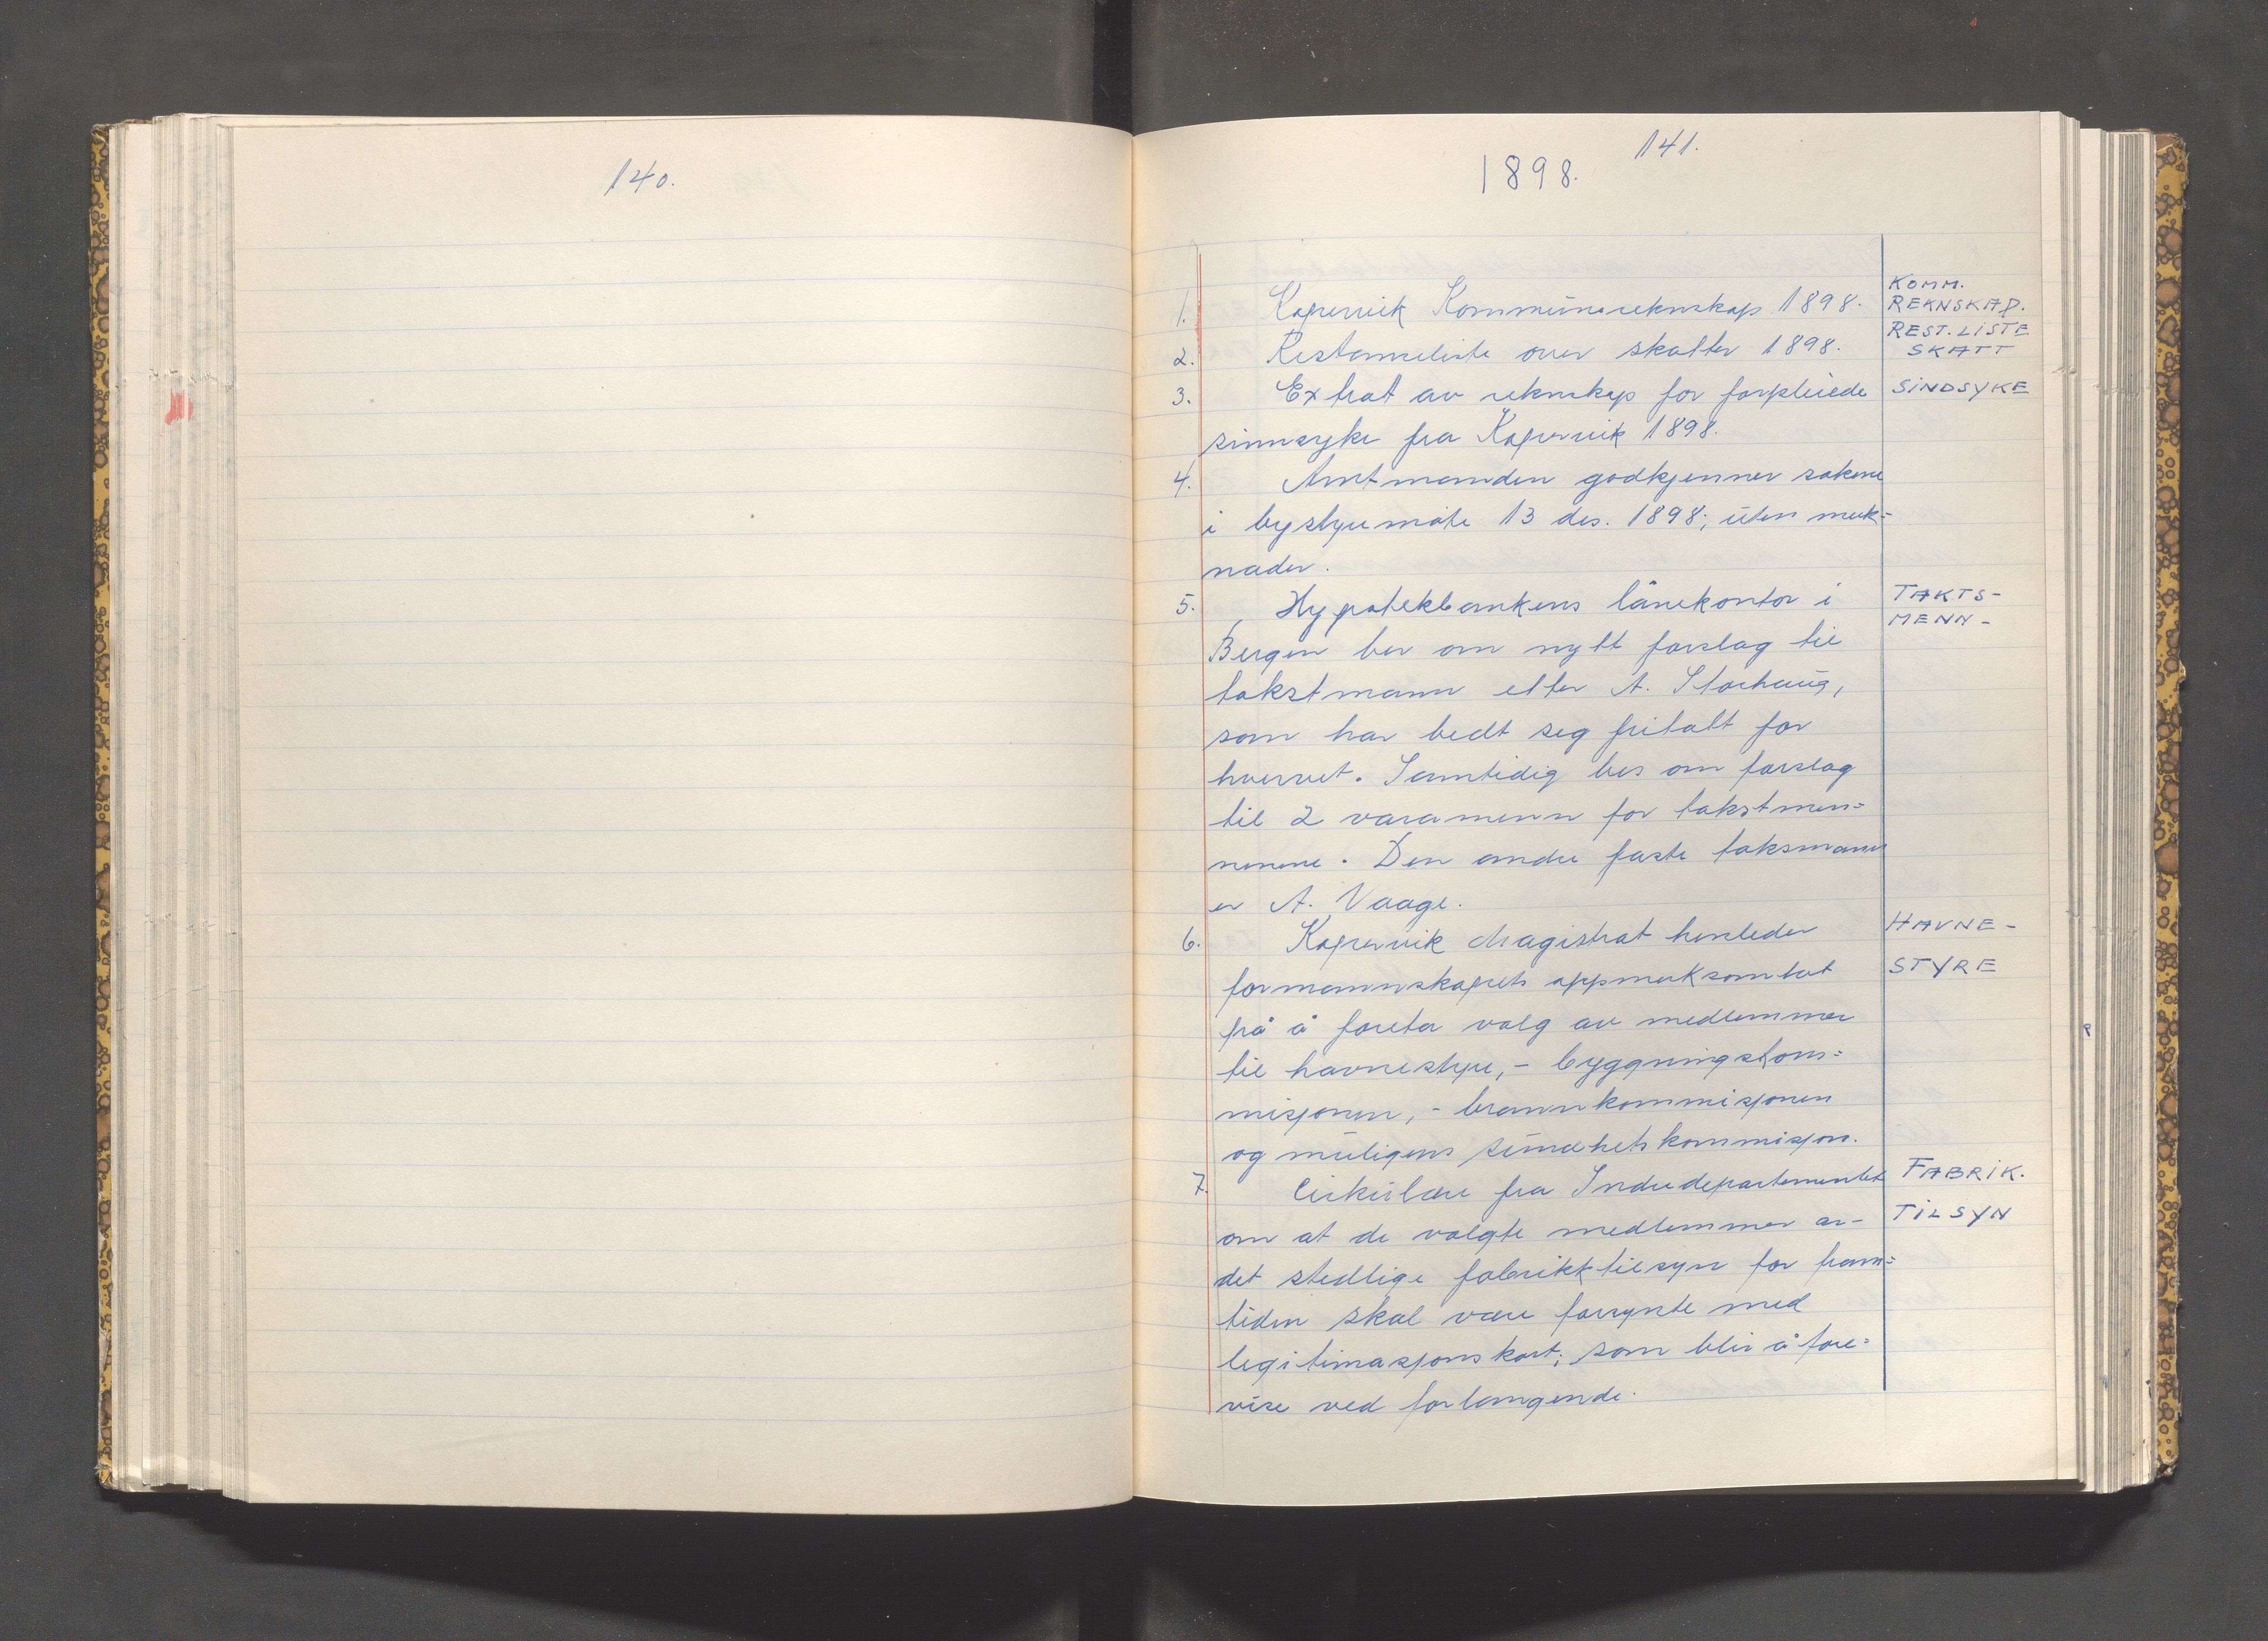 140.
141.
1898.
1. Kopervik Kommunereknskap 1898. KOMM. REKNSKAP.
2. Restanseliste over skatter 1898. REST. LISTE SKATT
3. Extrat av reknskap for forpleiede SINDSYKE
sinnsyke fra Kopervik 1898.
4. Amtmanden godkjenner sakene
i bystyremöte 13 des. 1898; uten merk=
nader.
5. Hypotekbankens lånekontor i TAKTS-
Bergen ber om nytt forslag til MENN-
takstmann etter A. Storhaug,
som har bedt seg fritatt for
hvervet. Samtidig bes om forslag
til 2 varamenn for takstmen=
nenene. Den andre faste taksmann
er A. Vaage.
6. Kopervik Magistrat henleder HAVNE-
formannskapets oppmerksomhet STYRE
på å foreta valg av medlemmer
til havnestyre, - byggningskom=
misjonen, - brannkommisjonen
og muligens sunnhetskommisjon.
7. Cirkulære fra Indredepartementet FABRIK.
om at de valgte medlemmer av- TILSYN
det stedlige fabrikktilsyn for fram=
tiden skal være forsynte med
legitimasjonskort; som blir å fore=
vise ved forlangende.